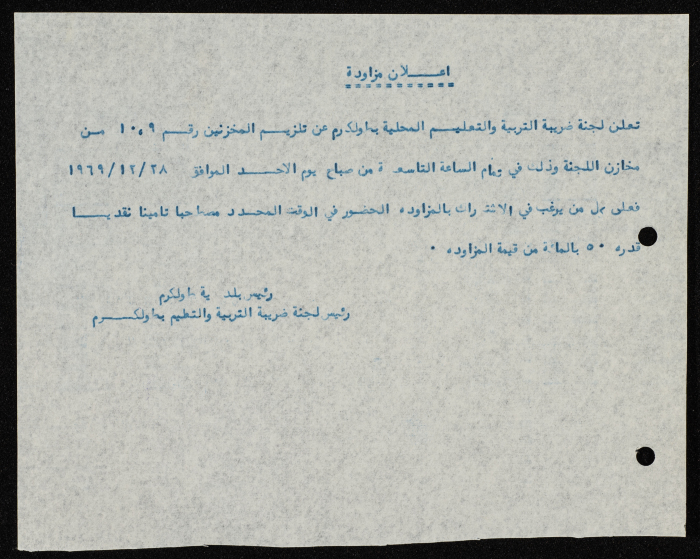 اعـــلان مزاودة
تعلن لجنة ضريبة التربية والتعليـم المحلية بطولكرم عن تلزيـم المخزنين رقـم ٩ ، ١٠ مـن
مخازن اللجنة وذلك في تمام الساعة التاسعة من صباح يوم الاحـــد الموافق ١٩٦٩/١٢/٢٨
فعلى كل من يرغب في الاشتراك بالمزاوده الحضور في الوقت المحدد مصطحبا تامينا نقديـا
قدره ٥٠ بالمائة من قيمة المزاوده ٠
رئيس بلدية طولكرم
رئيس لجنة ضريبة التربية والتعليم بطولكـــرم